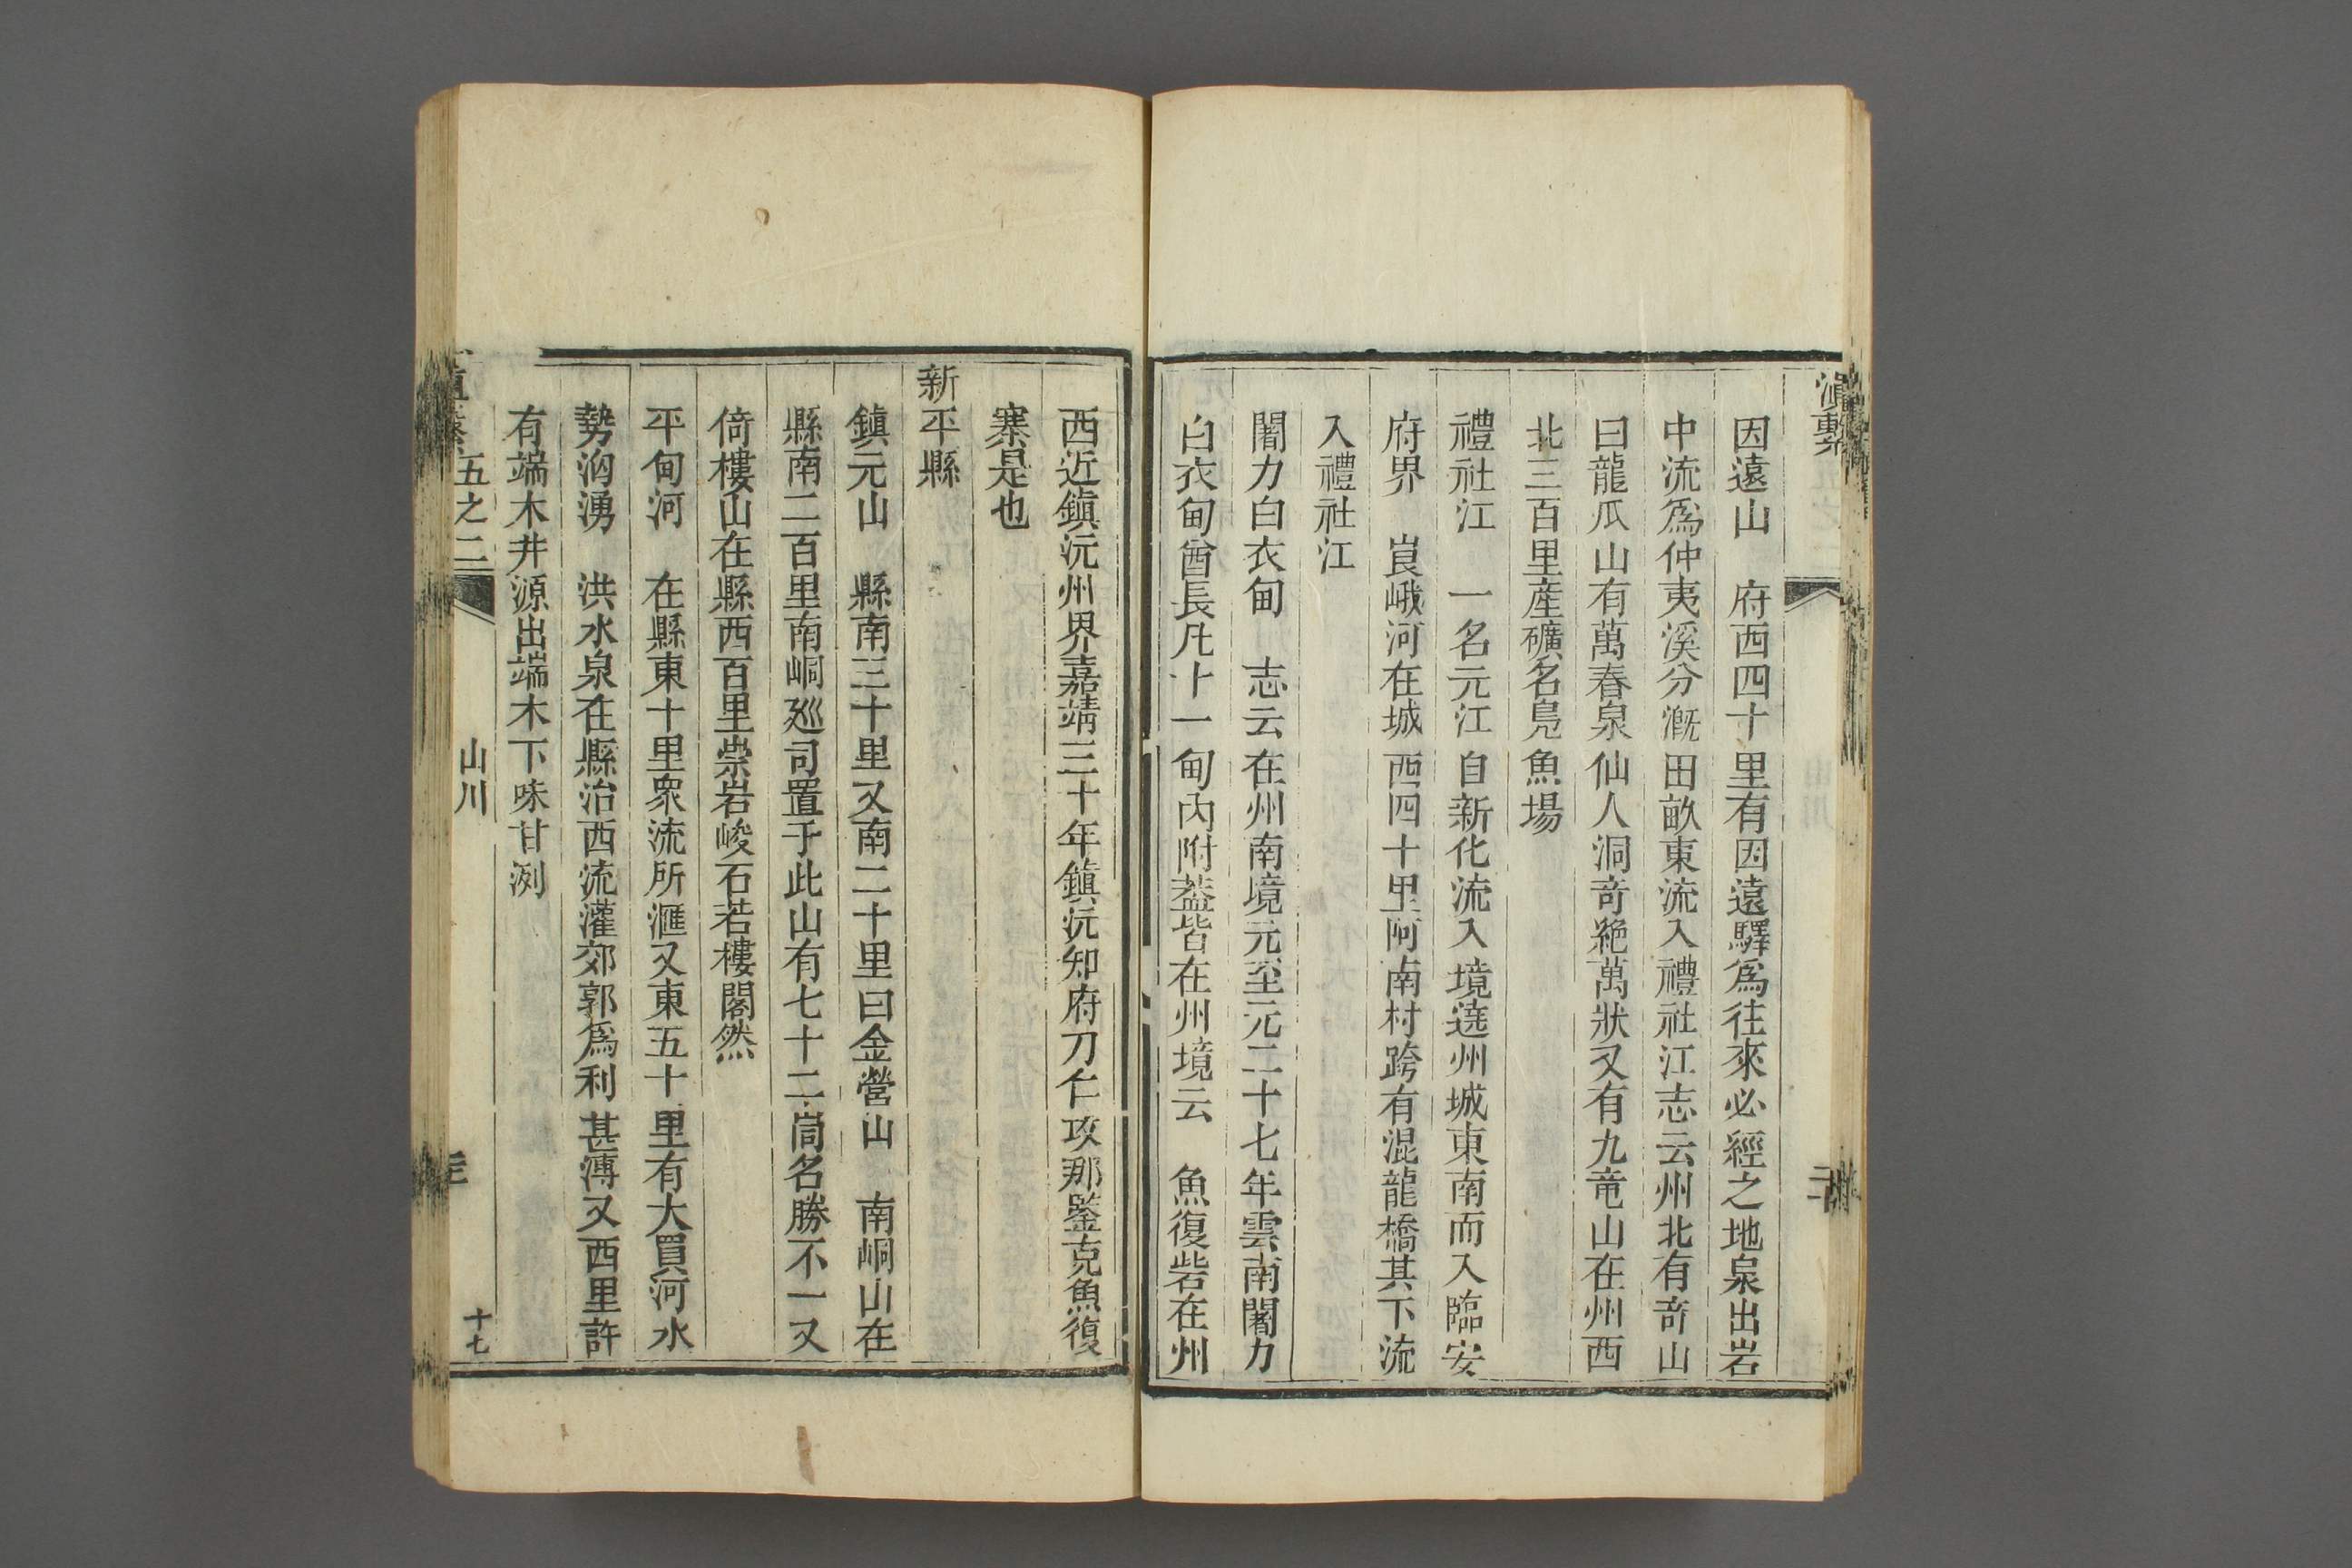 滇繫
因遠山　府西四十里有因遠驛爲往來必經之地泉出岩
中流爲仲夷溪分漑田畝東流入禮社江志云州北有奇山
曰龍瓜山有萬春泉仙人洞奇絶萬狀又有九竜山在州西
北三百里産礦名鳬魚場
禮社江　一名元江自新化流入境遶州城東南而入臨安
府界　崀峨河在城西四十里阿南村跨有混龍橋其下流
入禮社江
闍力白衣甸　志云在州南境元至元二十七年雲南闍力
白衣甸酋長凡十一甸內附葢皆在州境云　魚復砦在州
西近鎮沅州界嘉靖三十年鎮沅知府刀仁攻那鑒克魚復
寨是也
新平縣
鎮元山　縣南三十里又南二十里曰金營山　南峒山在
縣南二百里南峒廵司置于此山有七十二峝名勝不一又
倚樓山在縣西百里崇岩峻石若樓閣然
平甸河　在縣東十里衆流所滙又東五十里有大買河水
勢洶湧　洪水泉在縣治西流灌郊郭爲利甚溥又西里許
有端木井源出端木下味甘洌
五之二
山川
十七